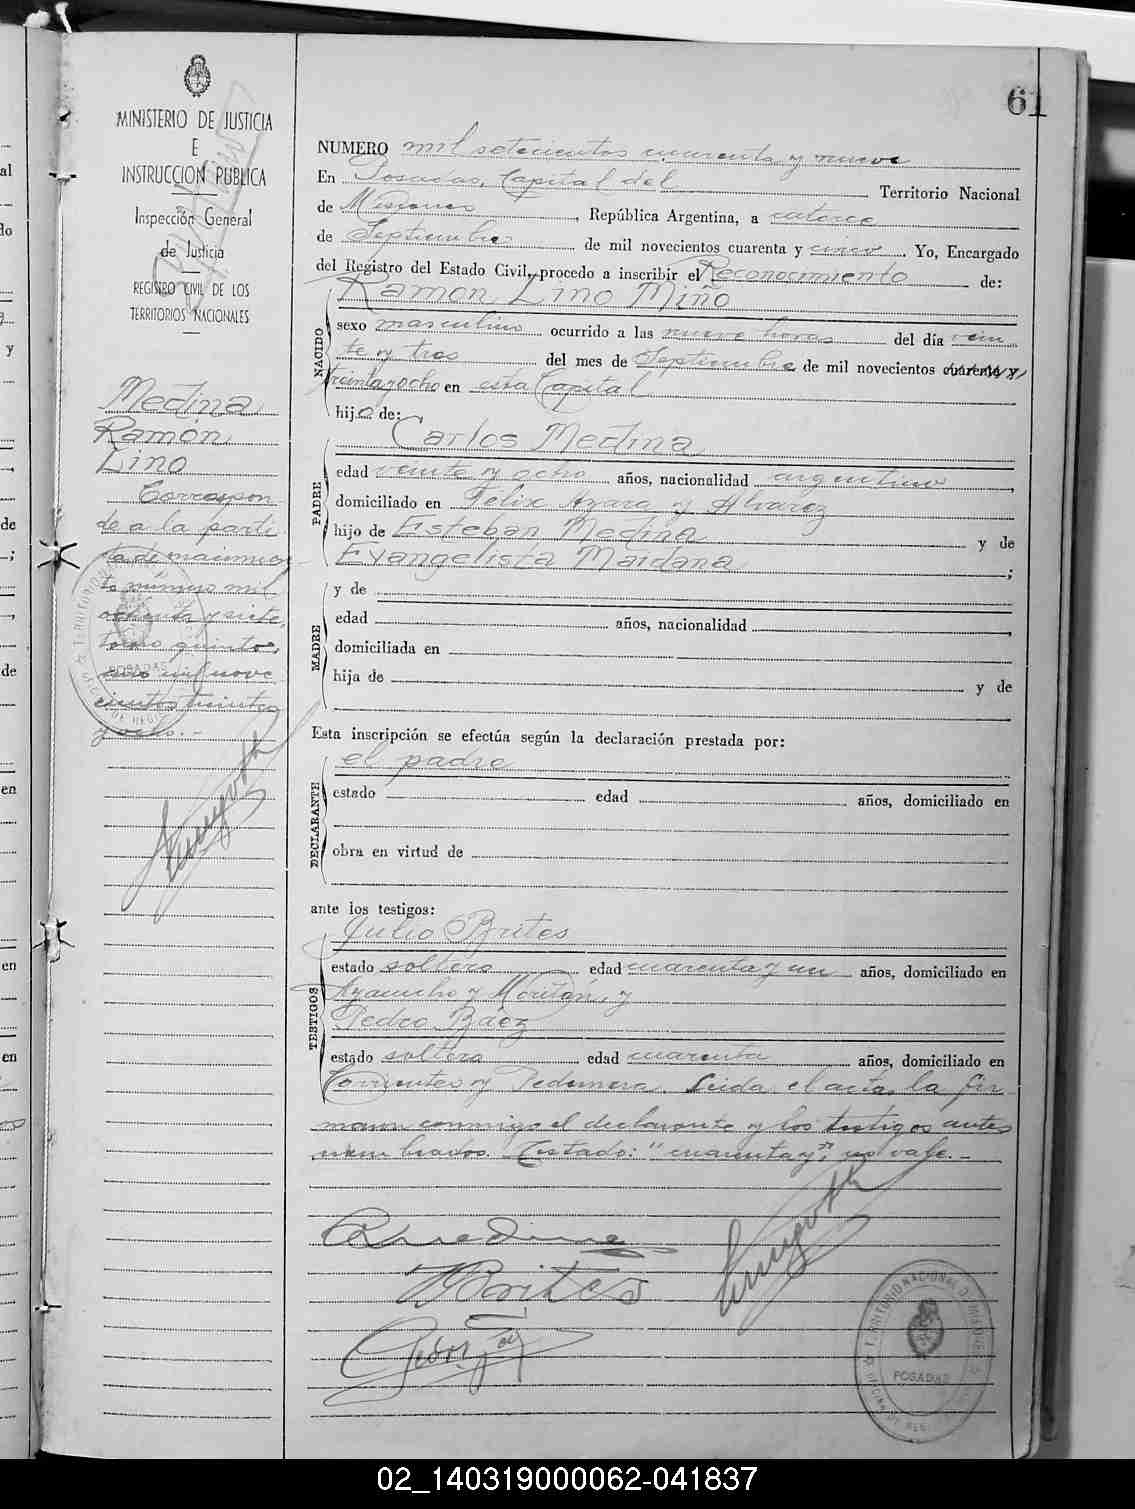 61
MINISTERIO DE JUSTICIA
E
INSTRUCCIÓN PÚBLICA
Inspección General
de Justicia
REGISTRO CIVIL DE LOS
TERRITORIOS NACIONALES
Medina
Ramón
Lino
Correspon-
de a la parti-
da de nacimien-
to número mil
ochenta y siete,
tomo quinto,
año mil nove-
cientos treinta
y ocho.-
NUMERO mil setecientos cuarenta y nueve
En Posadas, Capital del Territorio Nacional
de Misiones, República Argentina, a catorce
de Septiembre de mil novecientos cuarenta y cinco. Yo, Encargado
del Registro del Estado Civil, procedo a inscribir el Reconocimiento de:
Ramon Lino Miño
NACIDO
sexo masculino ocurrido a las nueve horas del día vein
te y tres del mes de Septiembre de mil novecientos cuarenta y
treinta y ocho en esta Capital
hijo de:
Carlos Medina
PADRE
edad veinte y ocho años, nacionalidad argentino,
domiciliado en Felix Azara y Alvarez
hijo de Esteban Medina y de
Evangelista Maidana;
MADRE
y de
edad años, nacionalidad,
domiciliada en
hija de y de
Esta inscripción se efectúa según la declaración prestada por:
el padre
DECLARANTE
estado edad años, domiciliado en
obra en virtud de
ante los testigos:
Julio Brites
TESTIGOS
estado soltero edad cuarenta y un años, domiciliado en
Ayacucho y Moritán, y
Pedro Báez
estado soltero edad cuarenta años, domiciliado en
Corrientes y Pedernera. Leida el acta, la fir-
maron conmigo el declarante y los testigos antes
nombrados. Testado: "cuarenta y", no vale.-
CMedina
JBrites
TERRITORIO NACIONAL DE MISIONES
POSADAS
02_140319000062-041837